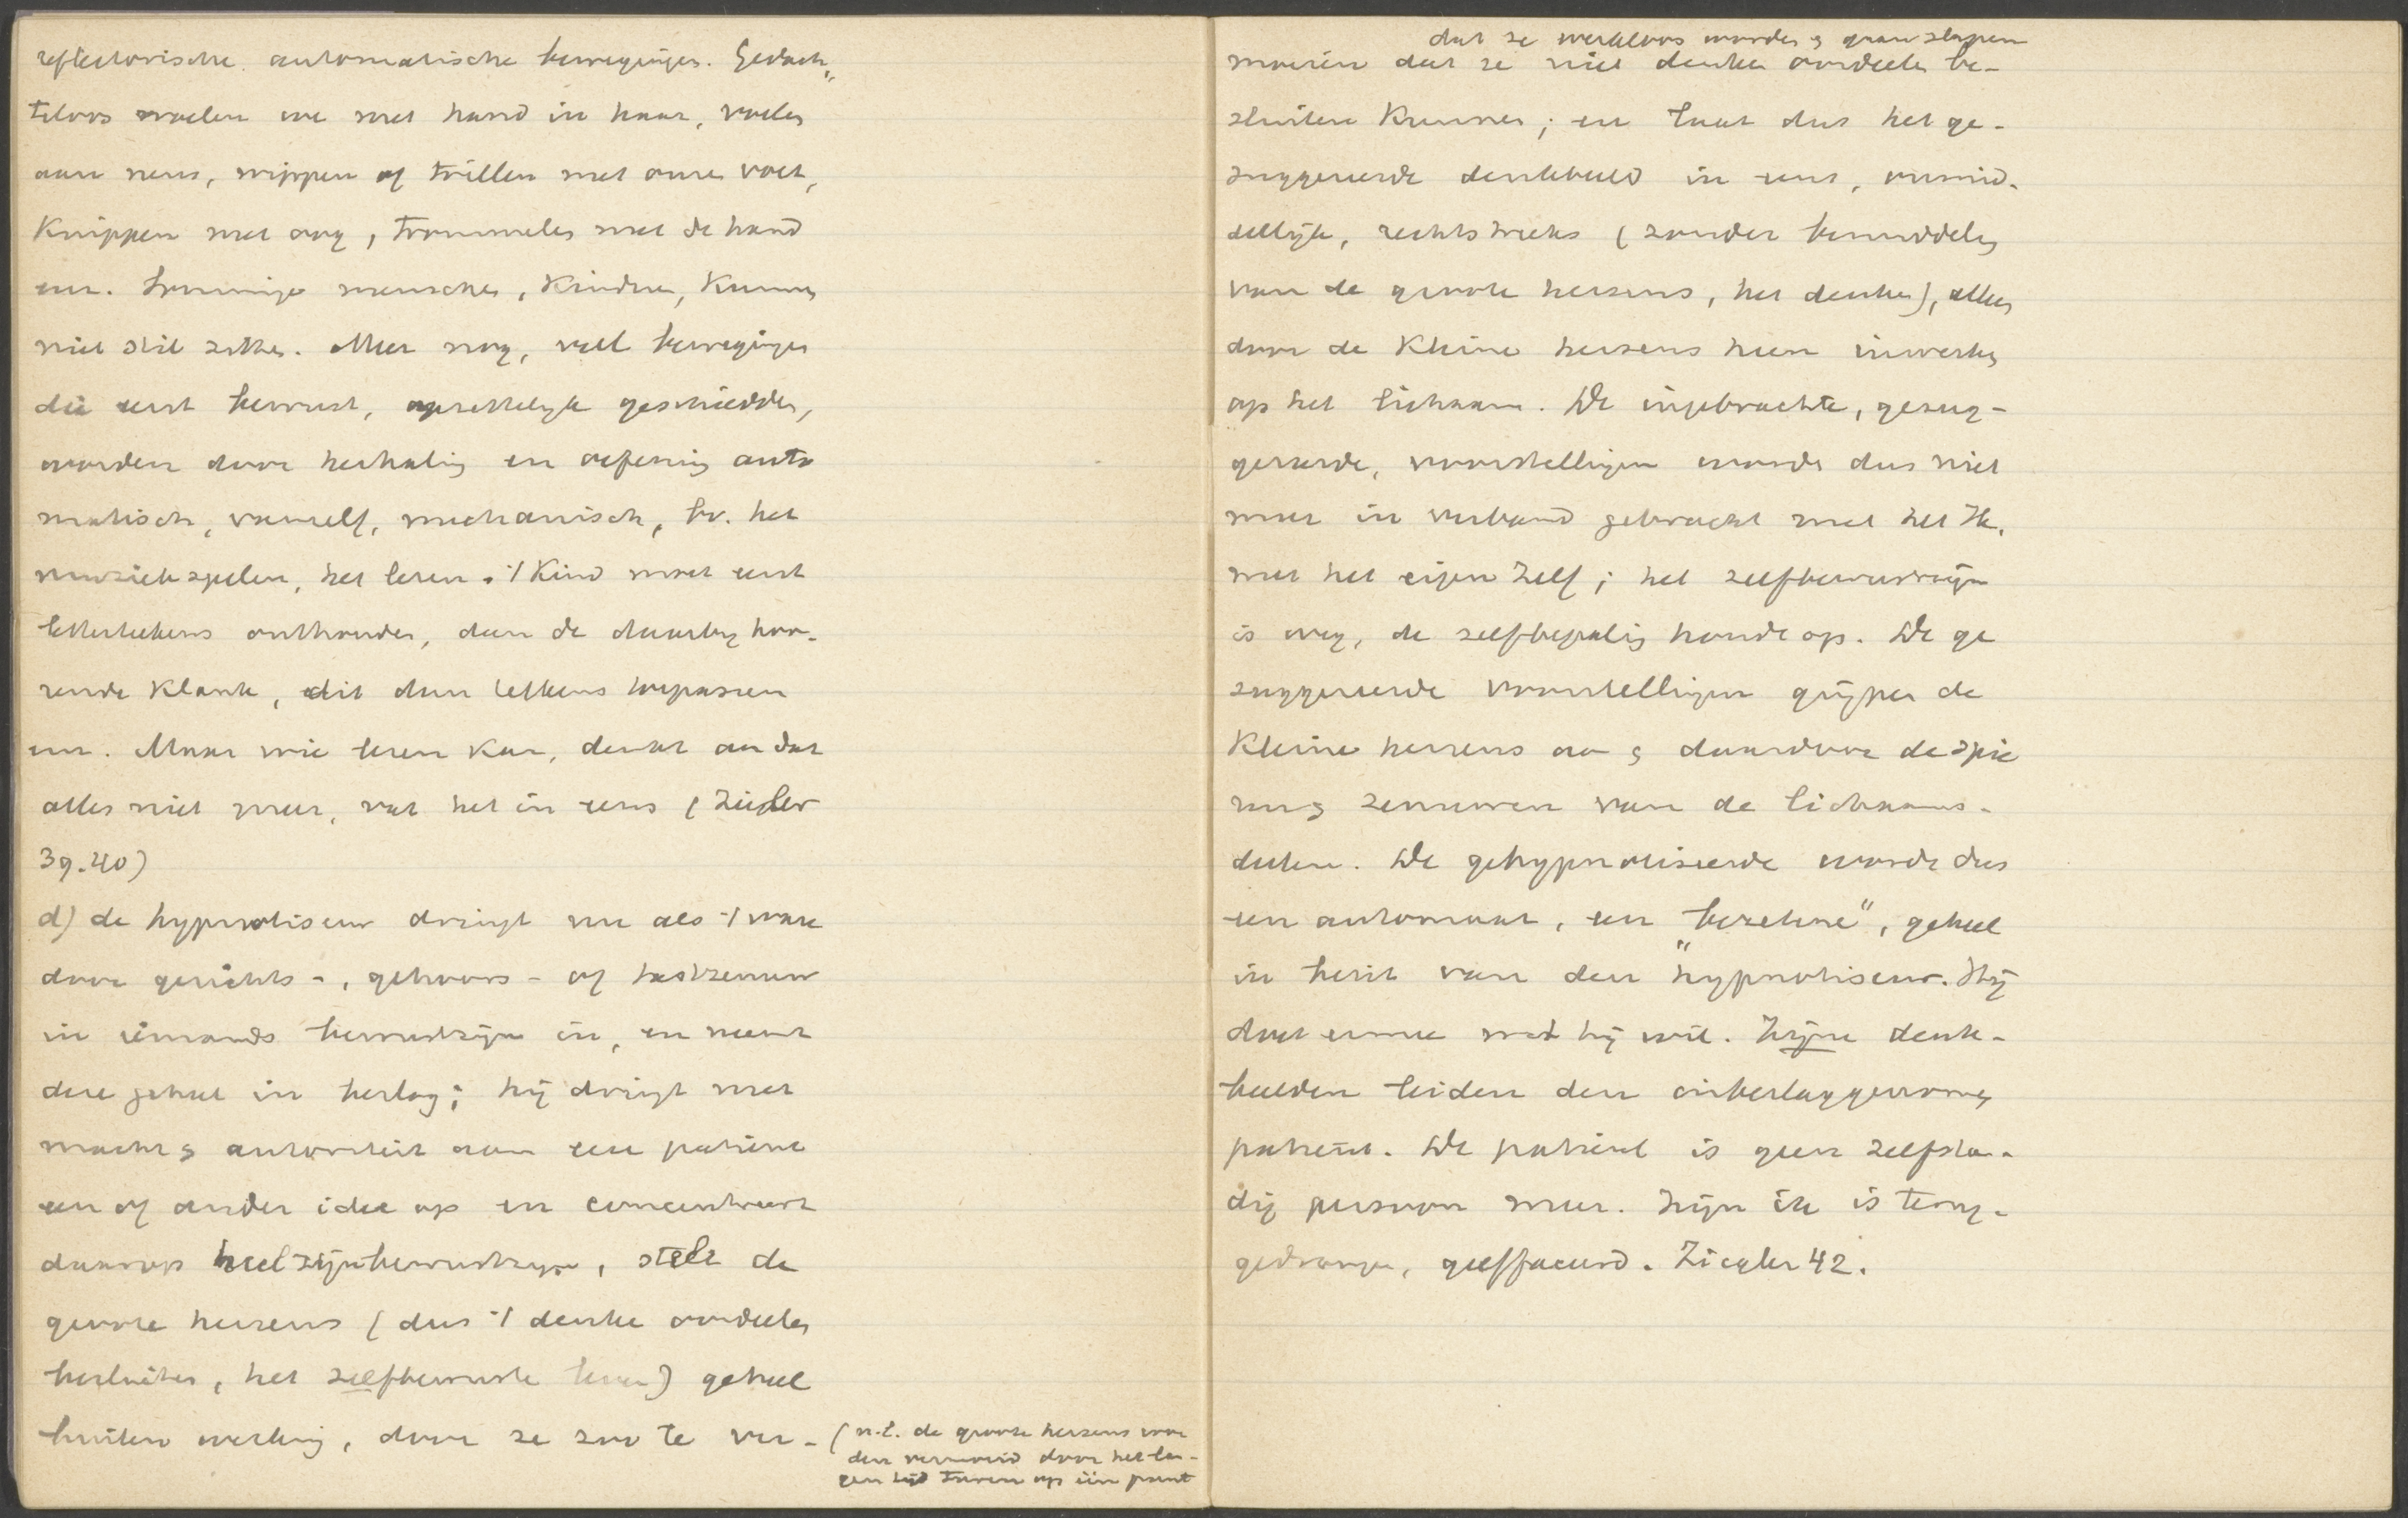 reflectorische automatische bewegingen. Gedach„
teloos woelen we met hand in haar, voelen
aan neus, wippen of trillen met onze voet,
Knippen met oog, trommelen met de hand
enz. Sommige menschen, Kinderen, Kunnen
niet stil zitten. Meer nog, veel bewegingen
die eerst bewust, opzettelijk geschiedden,
worden door herhaling en oefening auto
matisch, vanzelf, mechanisch, bv. het
muziekspelen, het lezen. 't Kind moet eerst
letterteekens onthouden, dan de daarbij hoo-
rende Klank, dit dan telkens toepassen
enz. Maar wie lezen Kan, denkt aan dat
alles niet meer, vat het in eens (Ziegler
39.40)
d) de hypnotiseur dringt nu als 't ware
door gezichts-, gehoors- of tastzenuw
in iemands bewustzijn in, en neemt
deze geheel in beslag; hij dringt met
macht & autoriteit aan een patient
een of ander idee op en concentreert
daarop heel zijn bewustzijn, stelt de
groote hersens (dus 't denken oordeelen
besluiten, het zelfbewuste leven) geheel
buiten werking, door ze zoo te ver- (n.l. de groote hersens wor
den vermoeid door het lan-
gen tijd turen op één punt
dat ze werkeloos worden & gaan slapen
moeien dat ze niet denken oordeelen be-
sluiten Kunnen; en laat dus het ge-
suggereerde denkbeeld in eens, onmid-
dellijk, rechtstreeks (zonder bemiddeling
van de groote hersens, het denken), alleen
door de Kleine hersens heen inwerken
op het lichaam. De ingebrachte, gesug-
gereerde, voorstellingen worden dus niet
meer in verband gebracht met het Ik,
met het eigen Zelf; het zelfbewustzijn
is weg, de zelfbepaling houdt op. De ge
suggereerde voorstellingen grijpen de
Kleine hersens aan & daardoor de spie
ren & zenuwen van de lichaams-
deelen. De gehypnotiseerde wordt dus
een automaat, een „bezetene”, geheel
in bezit van den hypnotiseur. Hij
doet ermee wat hij wil. Zijne denk-
beelden leiden den inbeslaggenomen
patient. De patient is geen zelfstan-
dig persoon meer. Zijn ik is terug-
gedrongen, geëffaceerd. Ziegler 42.